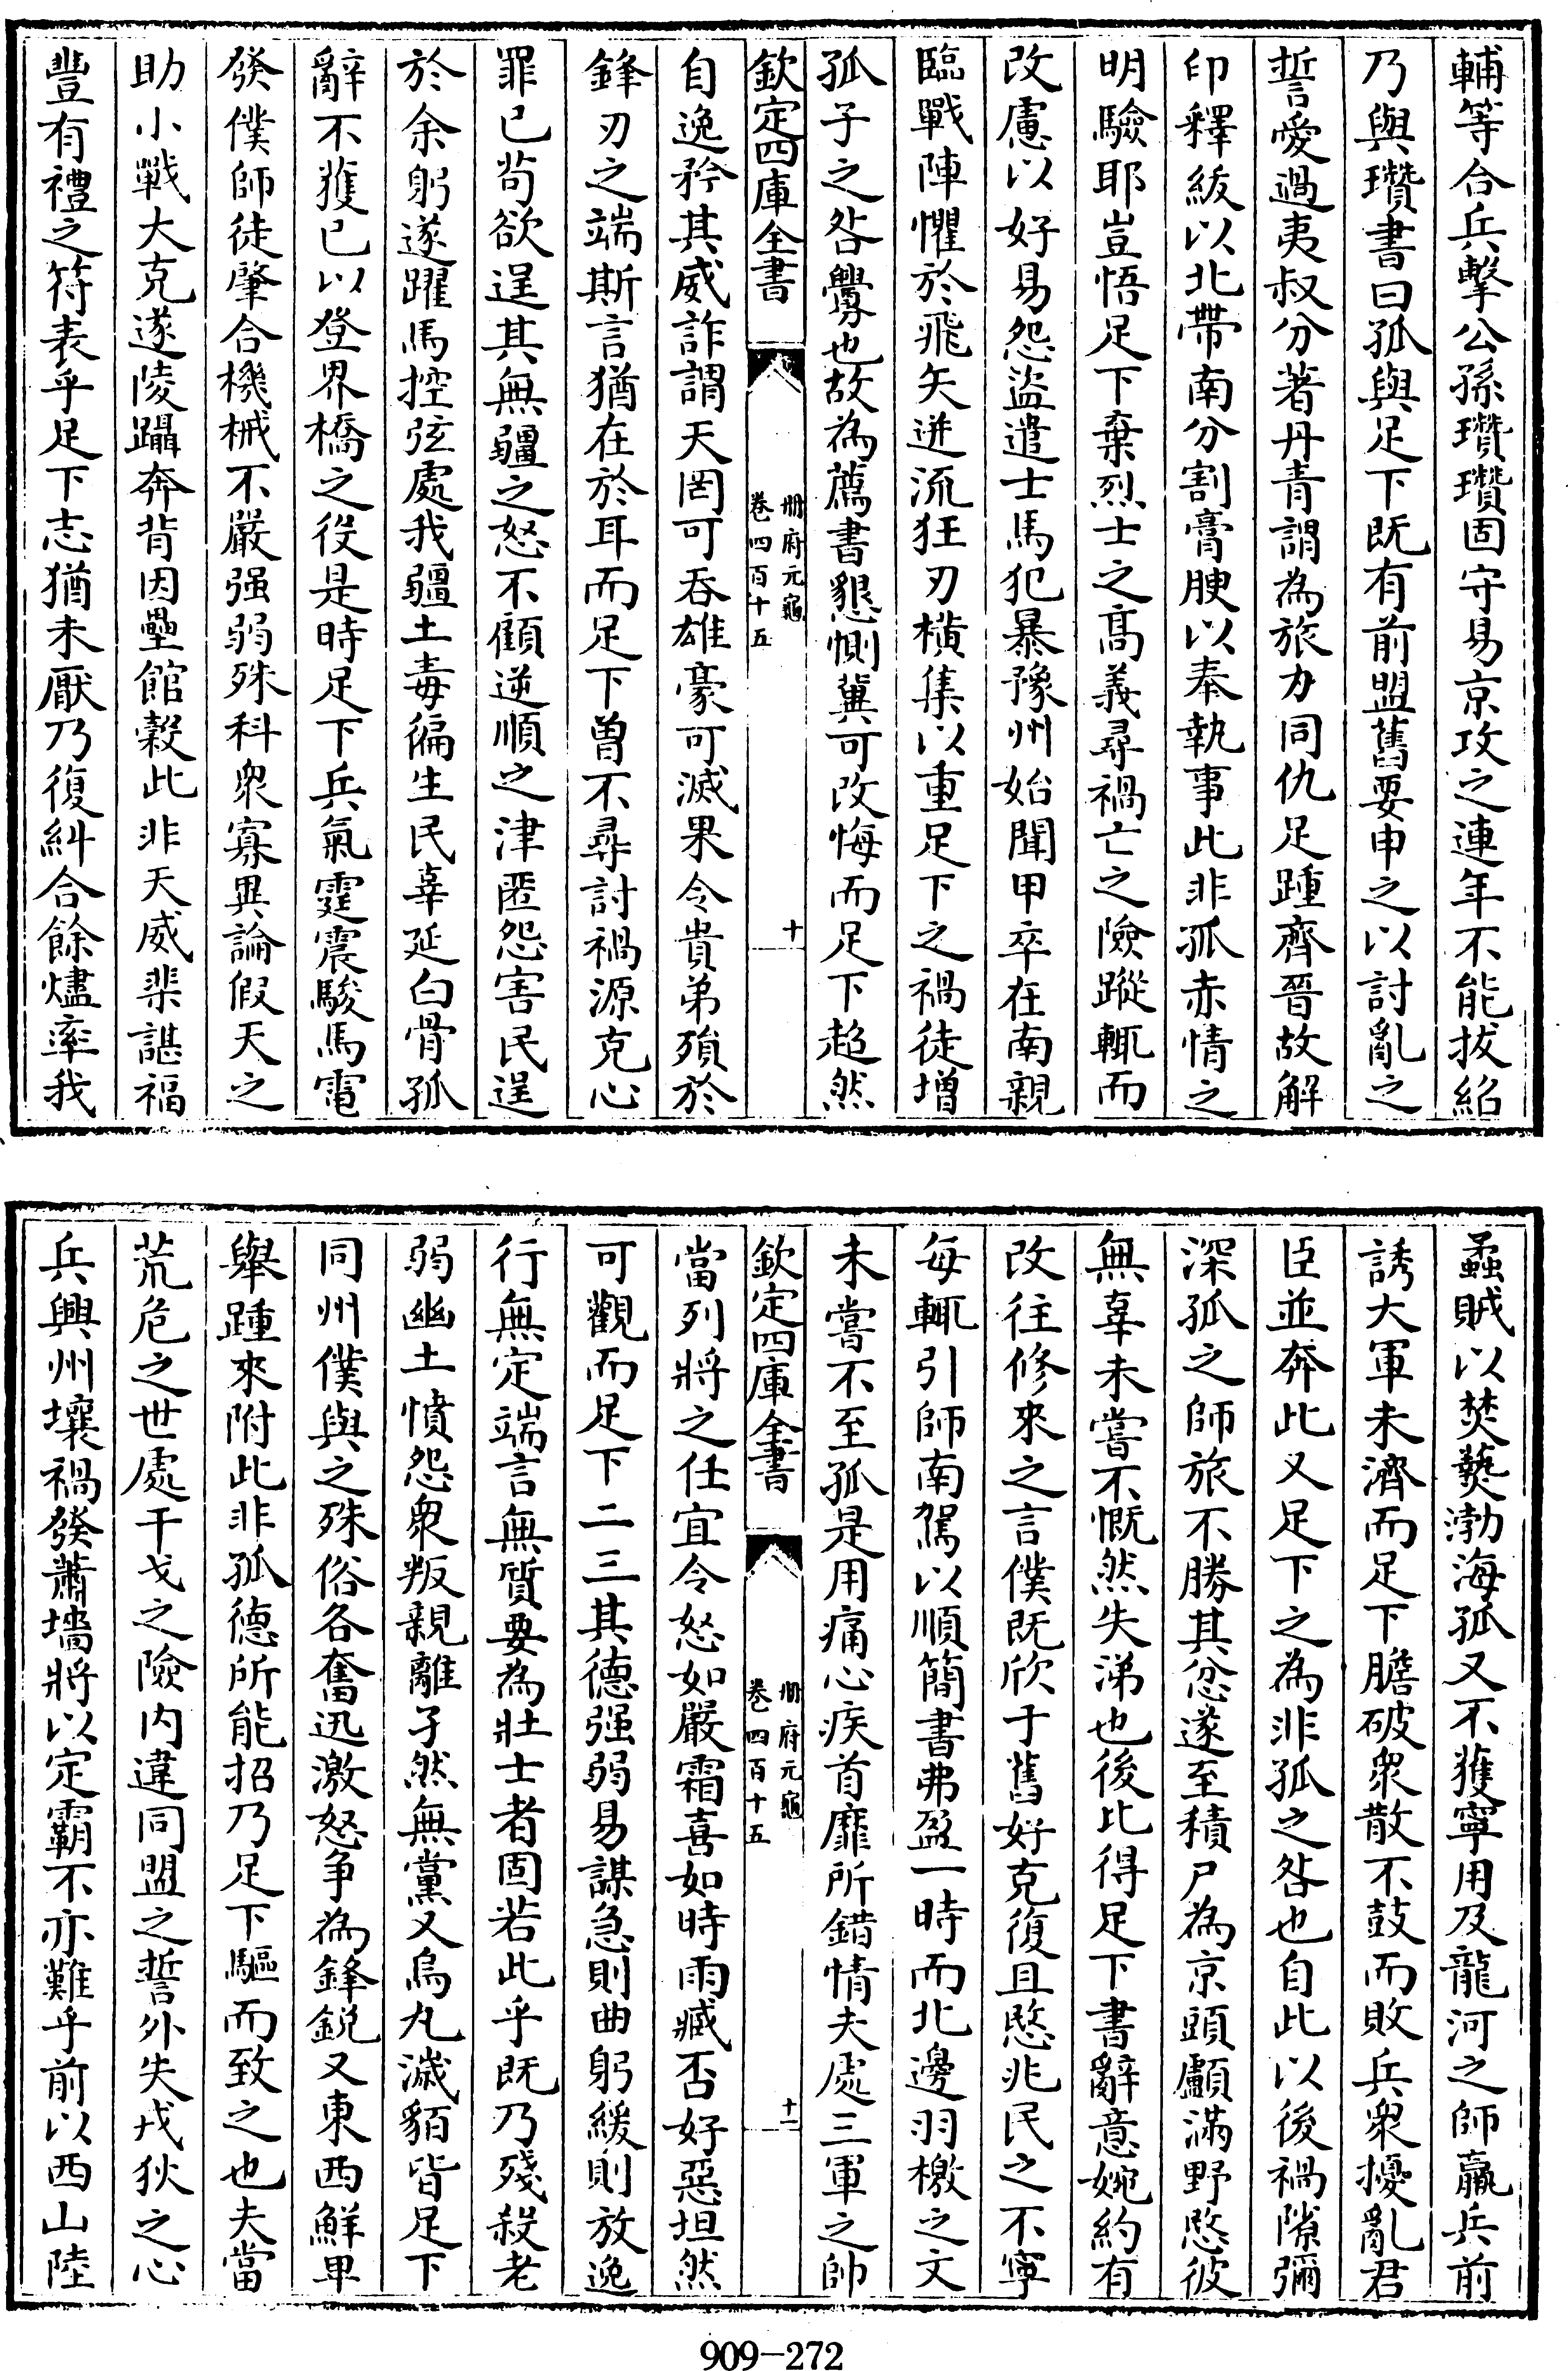 輔等合兵擊公孫瓚瓚固守易京攻之連年不能拔紹
乃與瓚書曰孤與足下既有前盟舊要申之以討亂之
誓愛過夷叔分著丹青謂為旅力同仇足踵齊晉故解
印釋紱以北帶南分割膏腴以奉執事此非孤赤情之
明驗耶豈悟足下棄烈士之高義尋禍亡之險蹤輒而
改慮以好易怨盜遣士馬犯暴豫州始聞甲卒在南親
臨戰陣懼於飛矢迸流狂刃橫集以重足下之禍徒增
孤子之咎釁也故為薦書懇惻冀可改悔而足下超然
欽定四庫全書
冊府元龜
卷四百十五
十
自逸矜其威詐謂天罔可吞雄豪可滅果令貴弟殞於
鋒刃之端斯言猶在於耳而足下曽不尋討禍源克心
罪已茍欲逞其無疆之怒不顧逆順之津匿怨害民逞
於余躬遂躍馬控弦處我疆土毒徧生民辜延白骨孤
辭不獲已以登界橋之役是時足下兵氣霆震駿馬電
發僕師徒肇合機械不嚴强弱殊科衆寡異論假天之
助小戰大克遂陵躡奔背因壘館穀此非天威棐諶福
豐有禮之符表乎足下志猶未厭乃復糾合餘燼率我
蟊賊以焚爇渤海孤又不獲寧用及龍河之師羸兵前
誘大軍未濟而足下膽破衆散不鼓而敗兵衆擾亂君
臣並奔此又足下之為非孤之咎也自此以後禍隙彌
深孤之師旅不勝其忿遂至積尸為京頭顱滿野愍彼
無辜未嘗不慨然失涕也後比得足下書辭意婉約有
改往修來之言僕既欣于舊好克復且愍兆民之不寧
每輒引師南駕以順簡書弗盈一時而北邊羽檄之文
未嘗不至孤是用痛心疾首靡所錯情夫處三軍之帥
欽定四庫全書
冊府元龜
卷四百十五
十一
當列將之任宜令怒如嚴霜喜如時雨臧否好惡坦然
可觀而足下二三其德强弱易謀急則曲躬緩則放逸
行無定端言無質要為壯士者固若此乎既乃殘殺老
弱幽土憤怨衆叛親離孑然無黨又烏丸濊貊皆足下
同州僕與之殊俗各奮迅激怒争為鋒銳又東西鮮卑
舉踵來附此非孤德所能招乃足下驅而致之也夫當
荒危之世處干戈之險内違同盟之誓外失戎狄之心
兵興州壤禍發蕭墻將以定霸不亦難乎前以西山陸
909-272